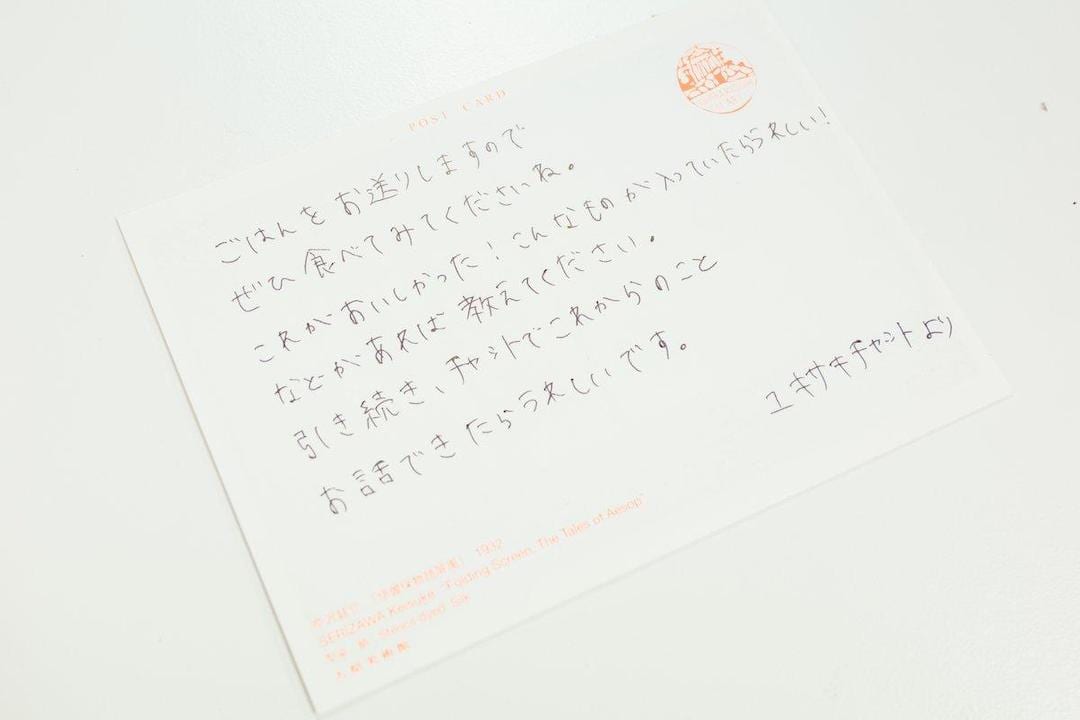 POST CARD
ごはんをお送りしますので
ぜひ食べてみてくださいね。
これがおいしかった！こんなものが入っていたらうれしい！
などがあれば教えてください。
引き続き、チャットでこれからのこと
お話できたらうれしいです。
ユキサキチャットより
1932
SERIZAWA Keisuke "Folding Screen, The Tales of Aesop"
Stencil-dyed, Silk
大原美術館